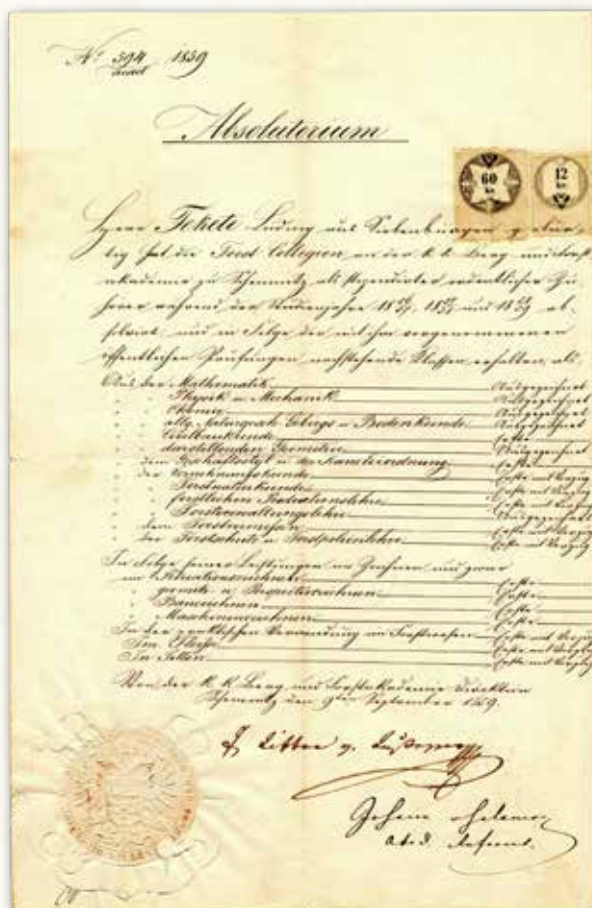 No 594 1859
acad
Absolutorium
60
kr
12
kr
Herr Fekete Ludwig aus Siebenbürgen gebür-
tig hat die Forst Collegien an der k. k. Berg und Forst
akademie zu Schemnitz als stipendirter ordentlicher Zu-
hörer während der Studienjahre 18 18 und 18 ab-
solvirt, und in Folge der mit ihm vorgenommenen
öffentlichen Prüfungen nachstehende Classen erhalten, als:
Aus der Mathematik Ausgezeichnet
" Physik u Mechanik Ausgezeichnet
" Chemie Ausgezeichnet
" allg. Gebirgs u Bodenkunde Ausgezeichnet
" Civilbaukunde Erste
" darstellenden Geometrie Ausgezeichnet
" dem Geschäftsstyl u der Kanzleiordnung Erste
" der Erste mit Vorzug
" Erste mit Vorzug
" forstlichen Erste mit Vorzug
" Forstverwaltungslehre Ausgezeichnet
" dem Erste mit Vorzug
" der Forstschutz u Forstpolizeilehre Erste mit Vorzug
In Folge seiner Leistungen im Zeichnen und zwar
im Situationszeichnen Erste
" Erste
" Bauzeichnen Erste
" Maschinenzeichnen Erste
In der praktischen Verwendung im Forstwesen Erste mit Vorzug
Im Fleisse Erste mit Vorzug
In Sitten Erste mit Vorzug
Von der k. k. Berg und Forstakademie Direktion
Schemnitz den 9ten September 1859.
Ritter v.
Johann